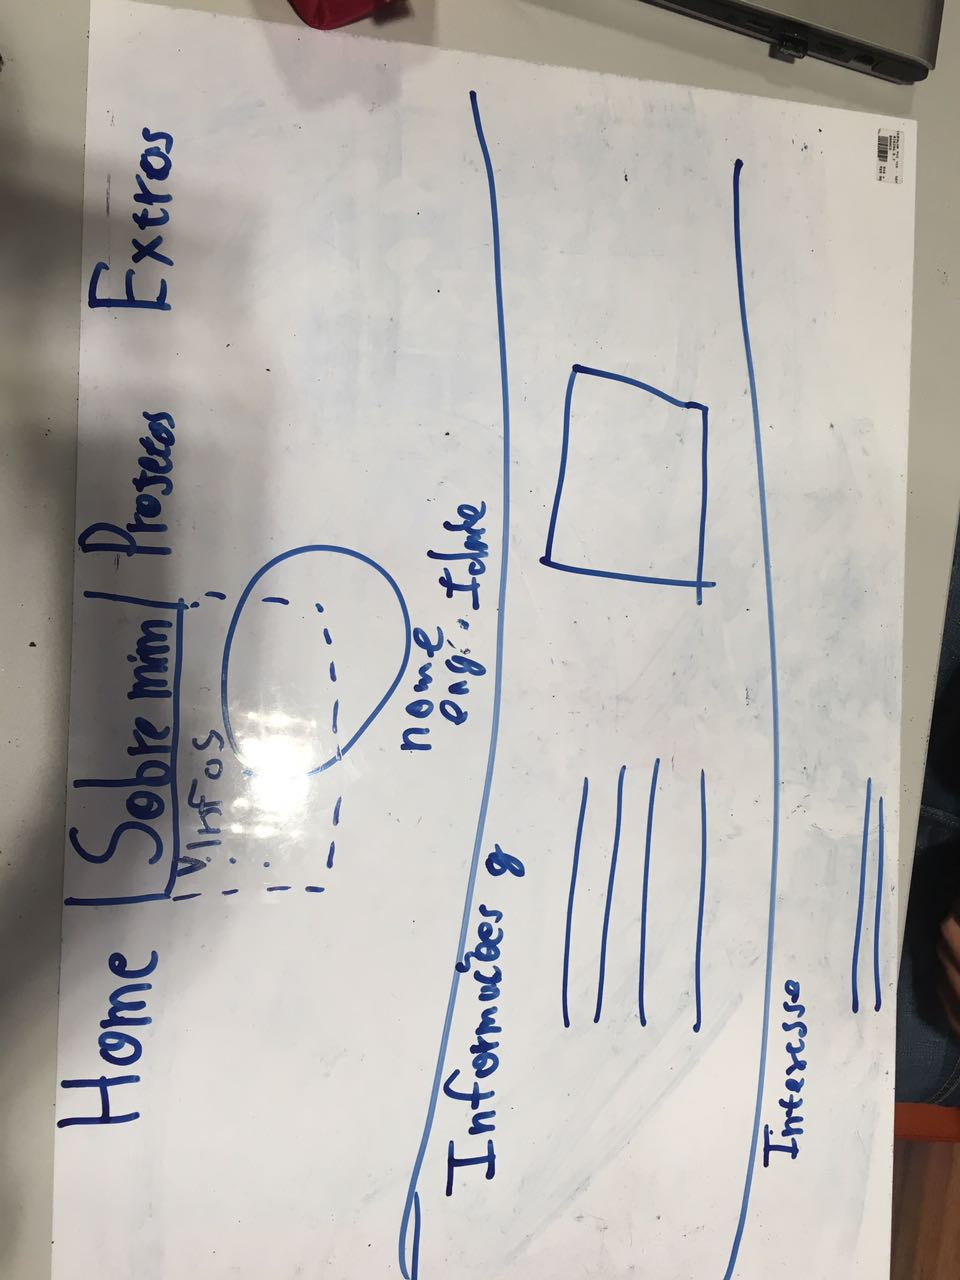 Home | Sobre mim / Projetos Extras
Infos
nome
eng. Idade
Informações
Interesse